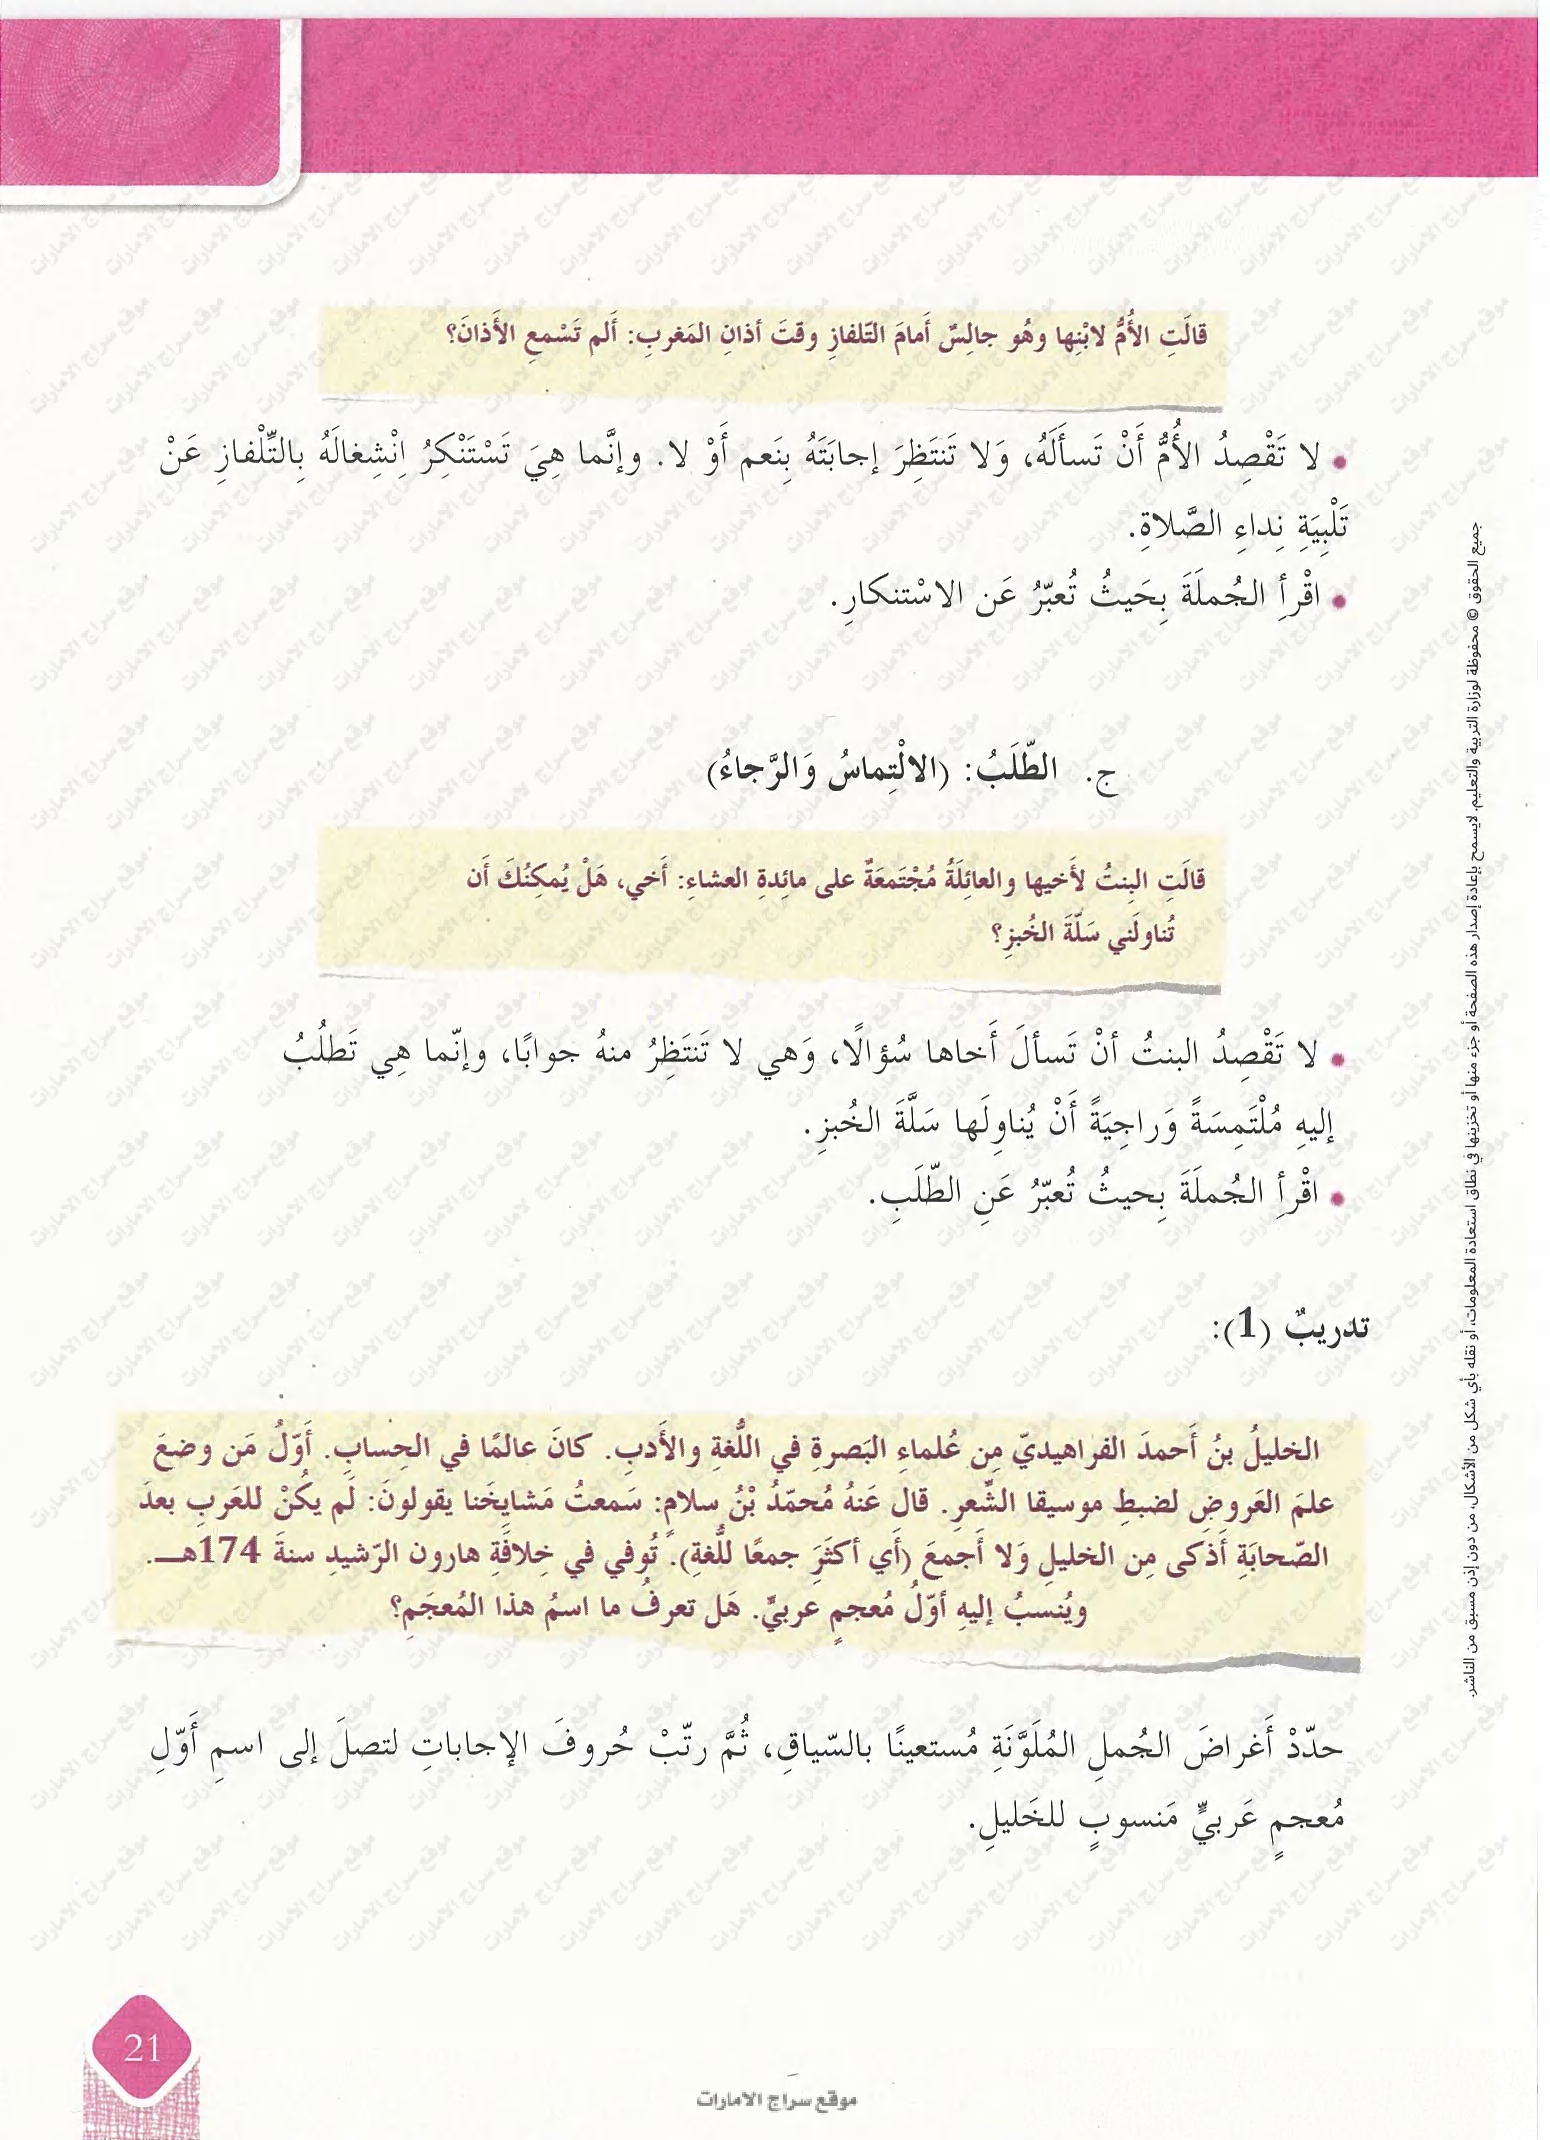 قالَتِ الأُمُّ لابْنِها وهُو جالِسٌ أَمامَ التّلفازِ وقتَ أذانِ المَغربِ: أَلم تَسْمعِ الأَذانَ؟
• لا تَقْصِدُ الأُمُّ أَنْ تَسأَلَهُ، وَلا تَنتَظِرَ إجابَتَهُ بِنَعم أَوْ لا. وإنَّما هِيَ تَسْتَنْكِرُ اِنْشِغالَهُ بِالتِّلْفازِ عَنْ
تَلْبِيَةِ نِداءِ الصَّلاةِ.
• اقْرأِ الجُملَةَ بِحَيثُ تُعبّرُ عَن الاسْتنكارِ.
ج. الطَّلَبُ: (الالْتِماسُ وَالرَّجاءُ)
قالَتِ البِنتُ لأَخيها والعائِلَةُ مُجْتَمعَةٌ على مائِدةِ العشاءِ: أَخي، هَلْ يُمكِنُكَ أَن
تُناولَني سَلّةَ الخُبزِ؟
• لا تَقْصِدُ البنتُ أنْ تَسأَلَ أَخاها سُؤالًا، وَهي لا تَنتَظِرُ منهُ جوابًا، وإنّما هِي تَطلُبُ
إليهِ مُلْتَمِسَةً وَراجِيَةً أَنْ يُناوِلَها سَلَّةَ الخُبزِ.
• اقْرأِ الجُملَةَ بِحيثُ تُعبّرُ عَنِ الطّلَبِ.
تدريبٌ (1):
الخليلُ بنُ أَحمدَ الفراهيديّ مِن عُلماءِ البَصرةِ في اللُّغةِ والأَدبِ. كانَ عالمًا في الحِسابِ. أَوّلُ مَن وضعَ
علمَ العَروضِ لضبطِ موسيقا الشِّعرِ. قال عَنهُ مُحمّدُ بْنُ سلامٍ: سَمعتُ مَشايخَنا يقولونَ: لَم يكُنْ للعَربِ بعدَ
الصّحابَةِ أَذكى مِن الخليلِ وَلا أَجمعَ (أَي أكثَرَ جمعًا للُّغةِ). تُوفي في خِلافَةِ هارون الرّشيدِ سنةَ 174هـ.
ويُنسبُ إليهِ أوّلُ مُعجمٍ عربيٍّ. هَل تعرفُ ما اسمُ هذا المُعجَمِ؟
حدّدْ أَغراضَ الجُملِ المُلَوَّنَةِ مُستعينًا بالسّياقِ، ثُمَّ رتّبْ حُروفَ الإجاباتِ لتصلَ إلى اسمِ أَوّلِ
مُعجمٍ عَربيٍّ مَنسوبٍ للخَليلِ.
جميع الحقوق © محفوظة لوزارة التربية والتعليم. لايسمح بإعادة إصدار هذه الصفحة أو جزء منها أو تخزينها في نطاق استعادة المعلومات، أو نقله بأي شكل من الأشكال، من دون إذن مسبق من الناشر.
21
موقع سراج الامارات